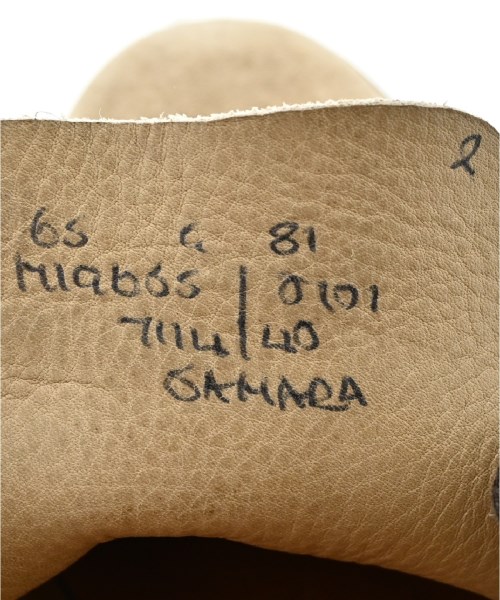 2
65 6 81
M19655 | 0101
7114 | 40
SAMARA